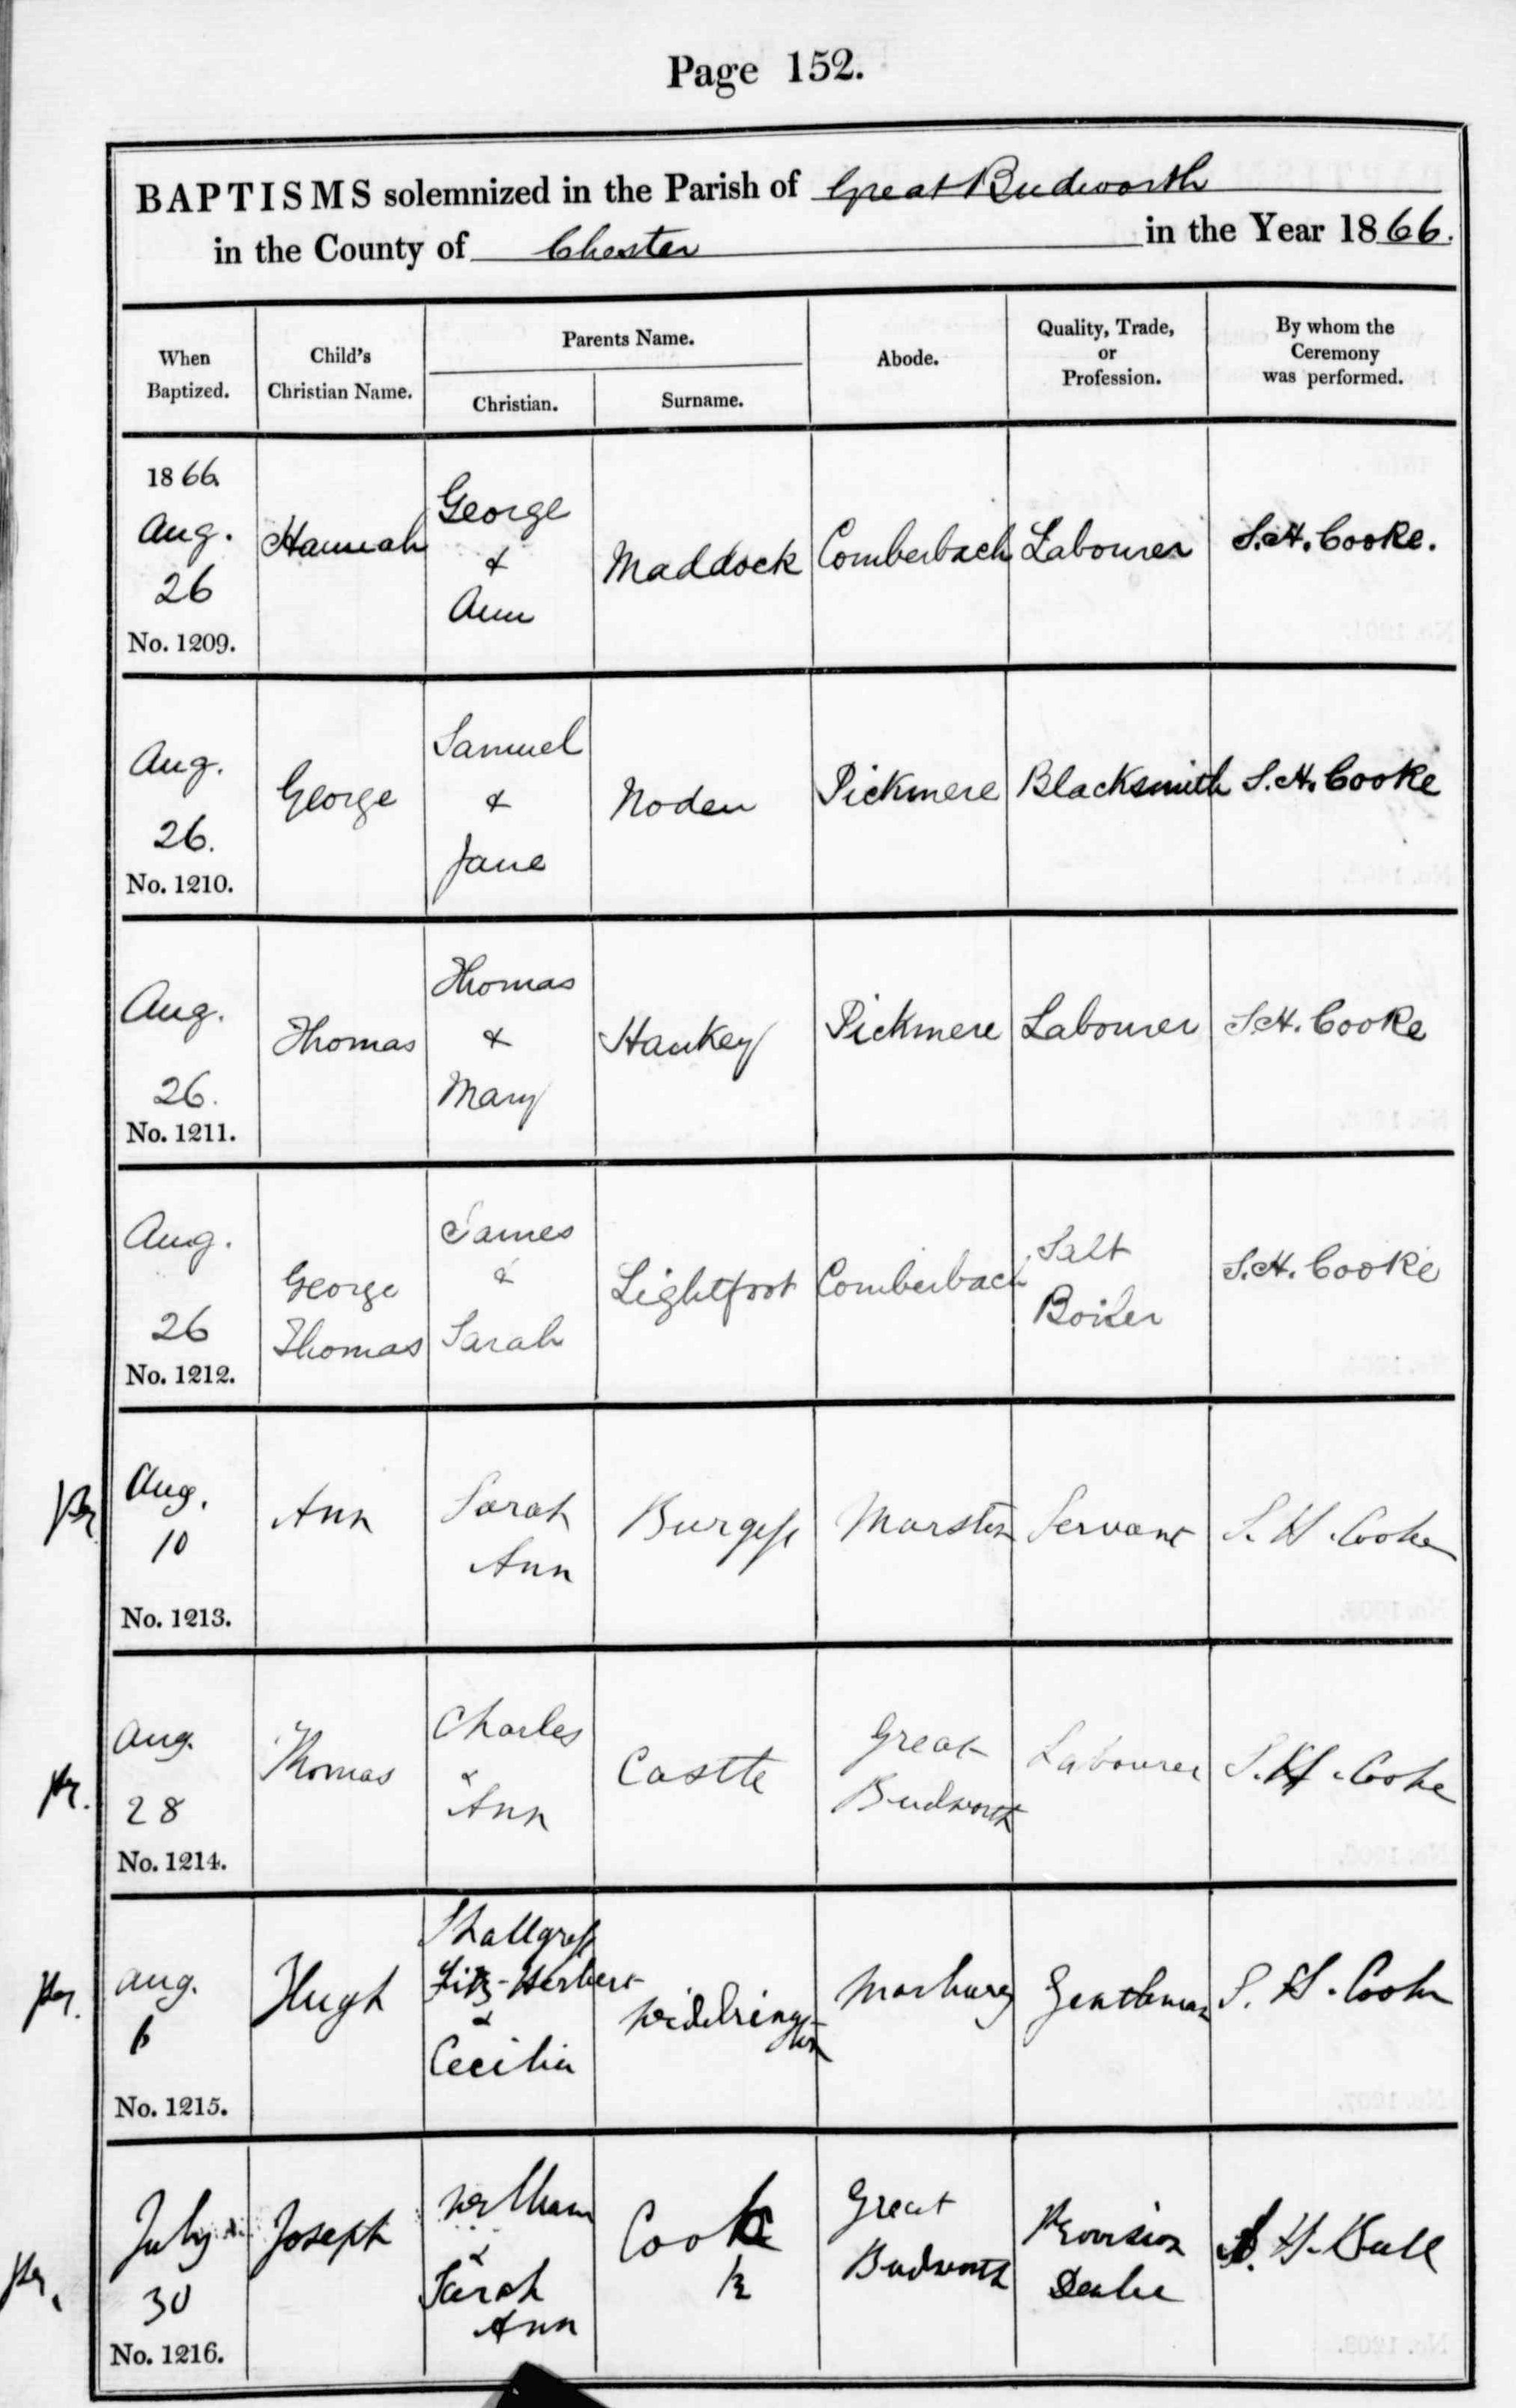 Page 152.
BAPTISMS solemnized in the Parish of Great Budworth
in the County of Chester in the Year 1866.
When Baptized. Child's Christian Name. Parents Name. Christian. Surname. Abode. Quality, Trade, or Profession. By whom the Ceremony was performed.
1866.
Aug. 26 No. 1209. Hannah George & Ann Maddock Comberbach Labourer S.H. Cooke.
Aug. 26. No. 1210. George Samuel & Jane Noden Pickmere Blacksmith S.H. Cooke
Aug. 26. No. 1211. Thomas Thomas & Mary Hankey Pickmere Labourer S.H. Cooke
Aug. 26 No. 1212. George Thomas James & Sarah Lightfoot Comberbach Salt Boiler S.H. Cooke
pr Aug. 10 No. 1213. Ann Sarah Ann Burgess Marston Servant S. H. Cooke
pr. Aug. 28 No. 1214. Thomas Charles & Ann Castle Great Budworth Labourer S. H. Cooke
pr. Aug. 6 No. 1215. Hugh Shallcross Fitz-Herbert & Cecilia Widdrington Marbury Gentleman S. H. Cooke
pr. July 30 No. 1216. Joseph William & Sarah Ann Cook Great Budworth Provision Dealer H. Bull